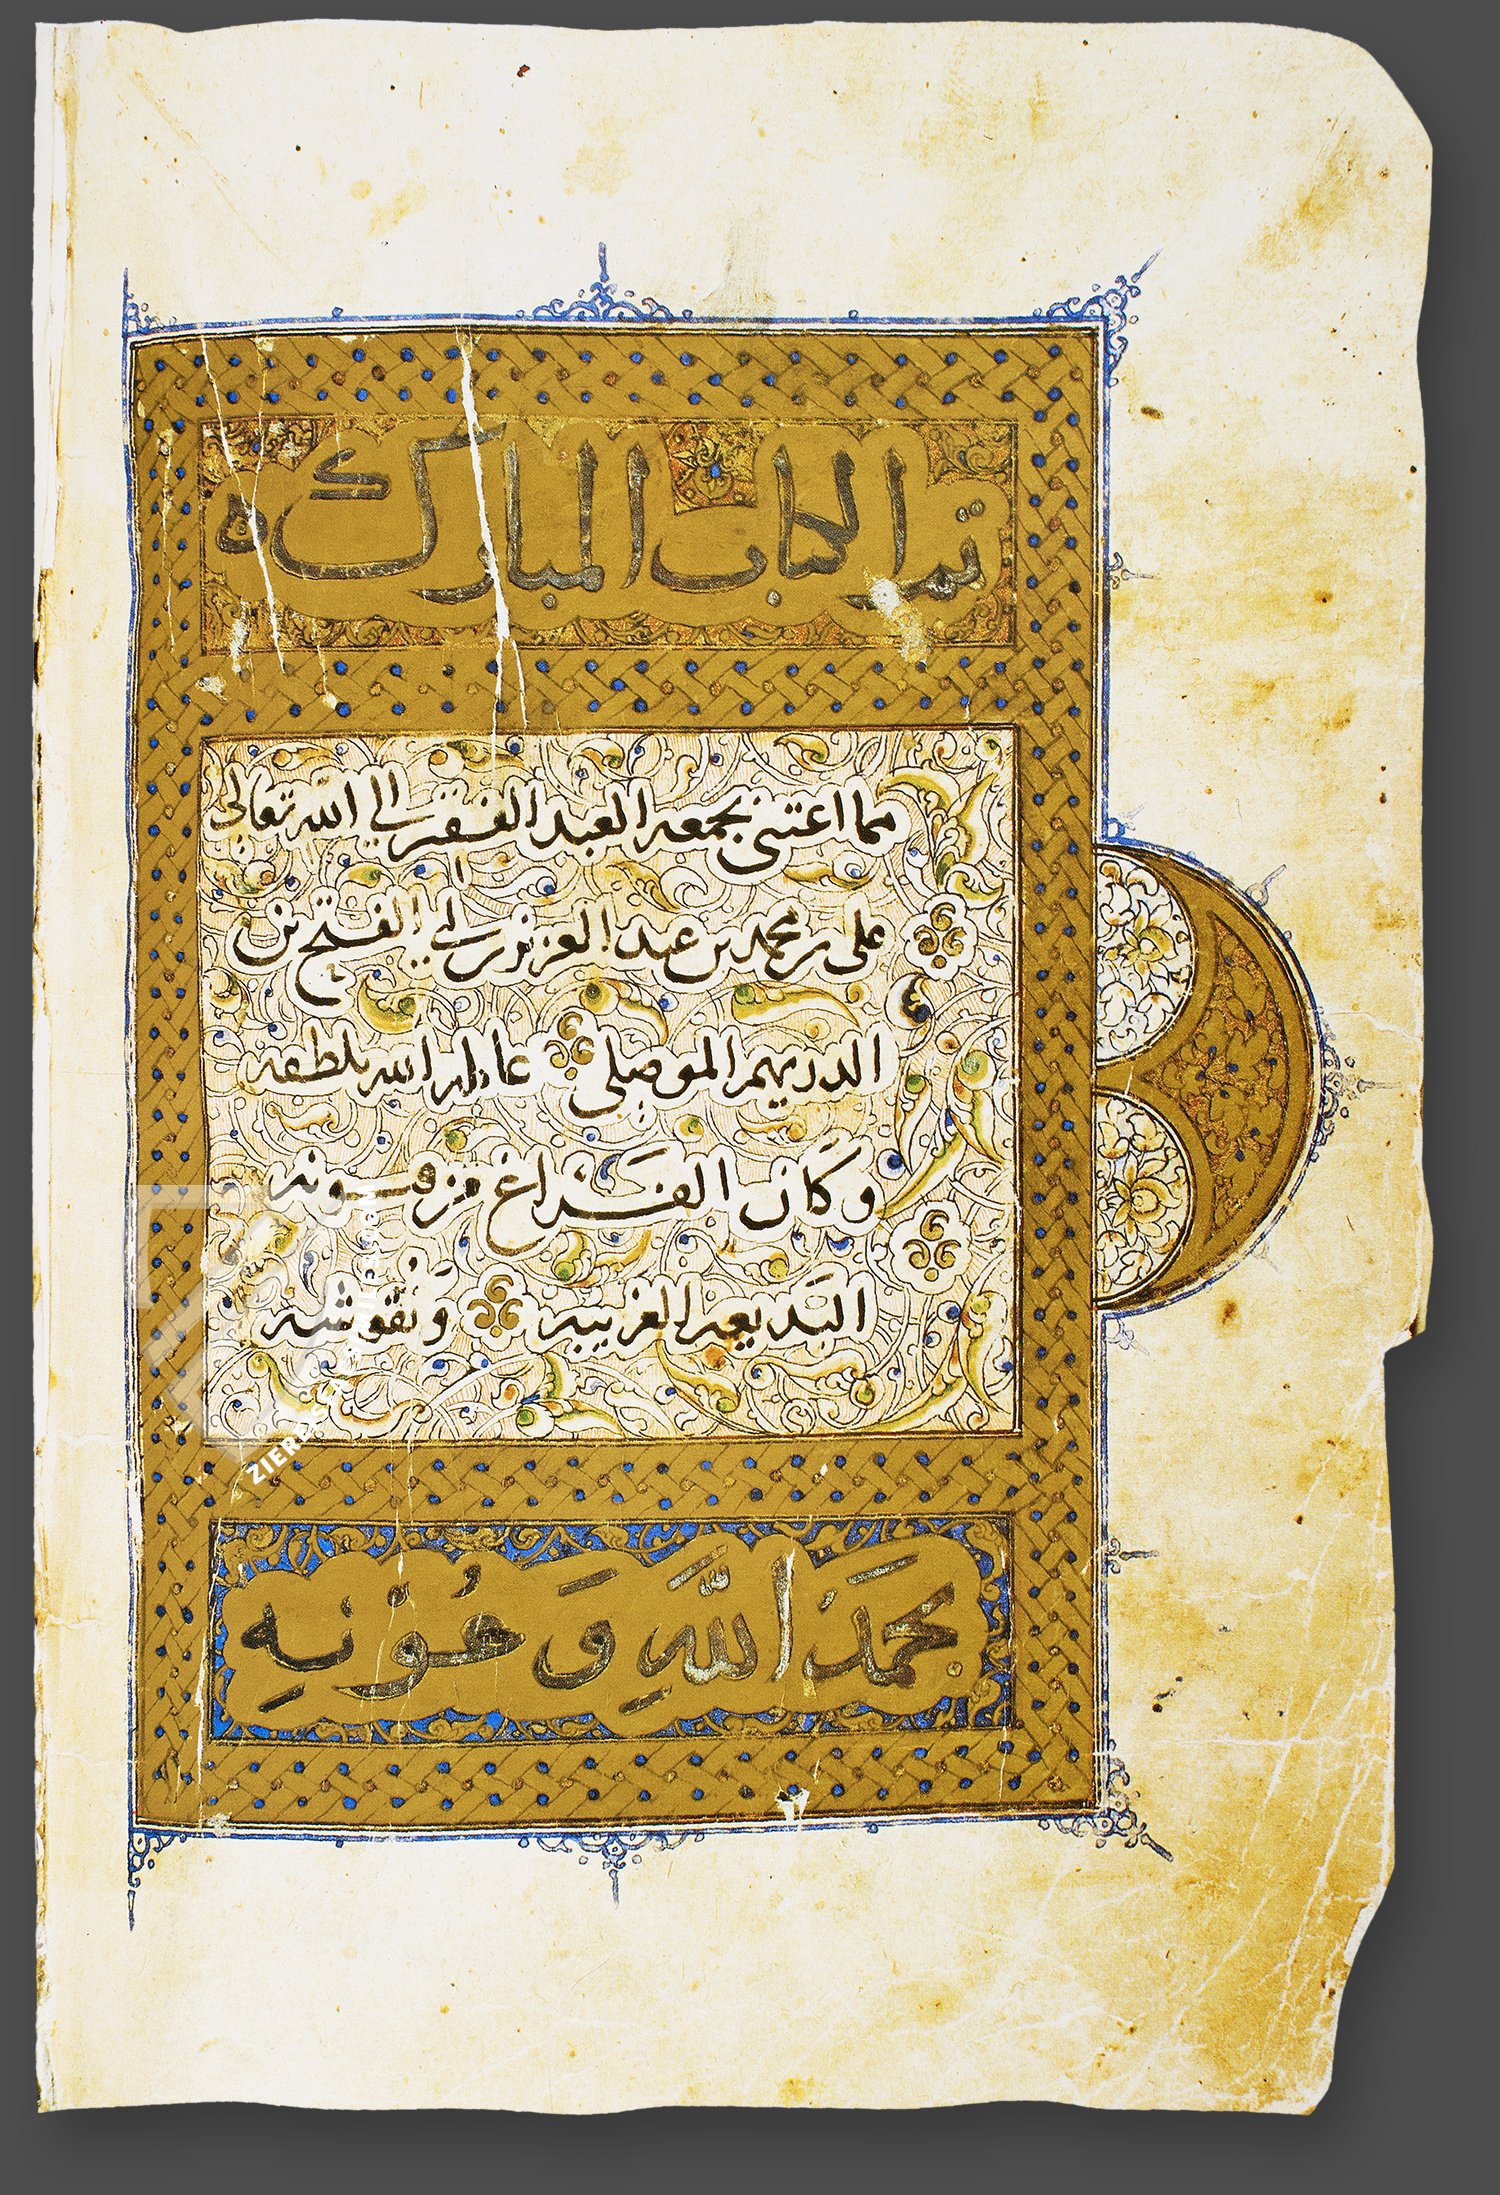 تم الكتاب المبارك
مما اعتنى بجمعه العبد الفقير الى الله تعالى
على بن محمد بن عبد العزيز بن ابي الفتح بن
الدريهم الموصلي عامله الله بلطفه
وكان الفراغ من
البَديعه الغريبه وَنُقوشه
بحمَد اللَّهِ وَعُونِهِ